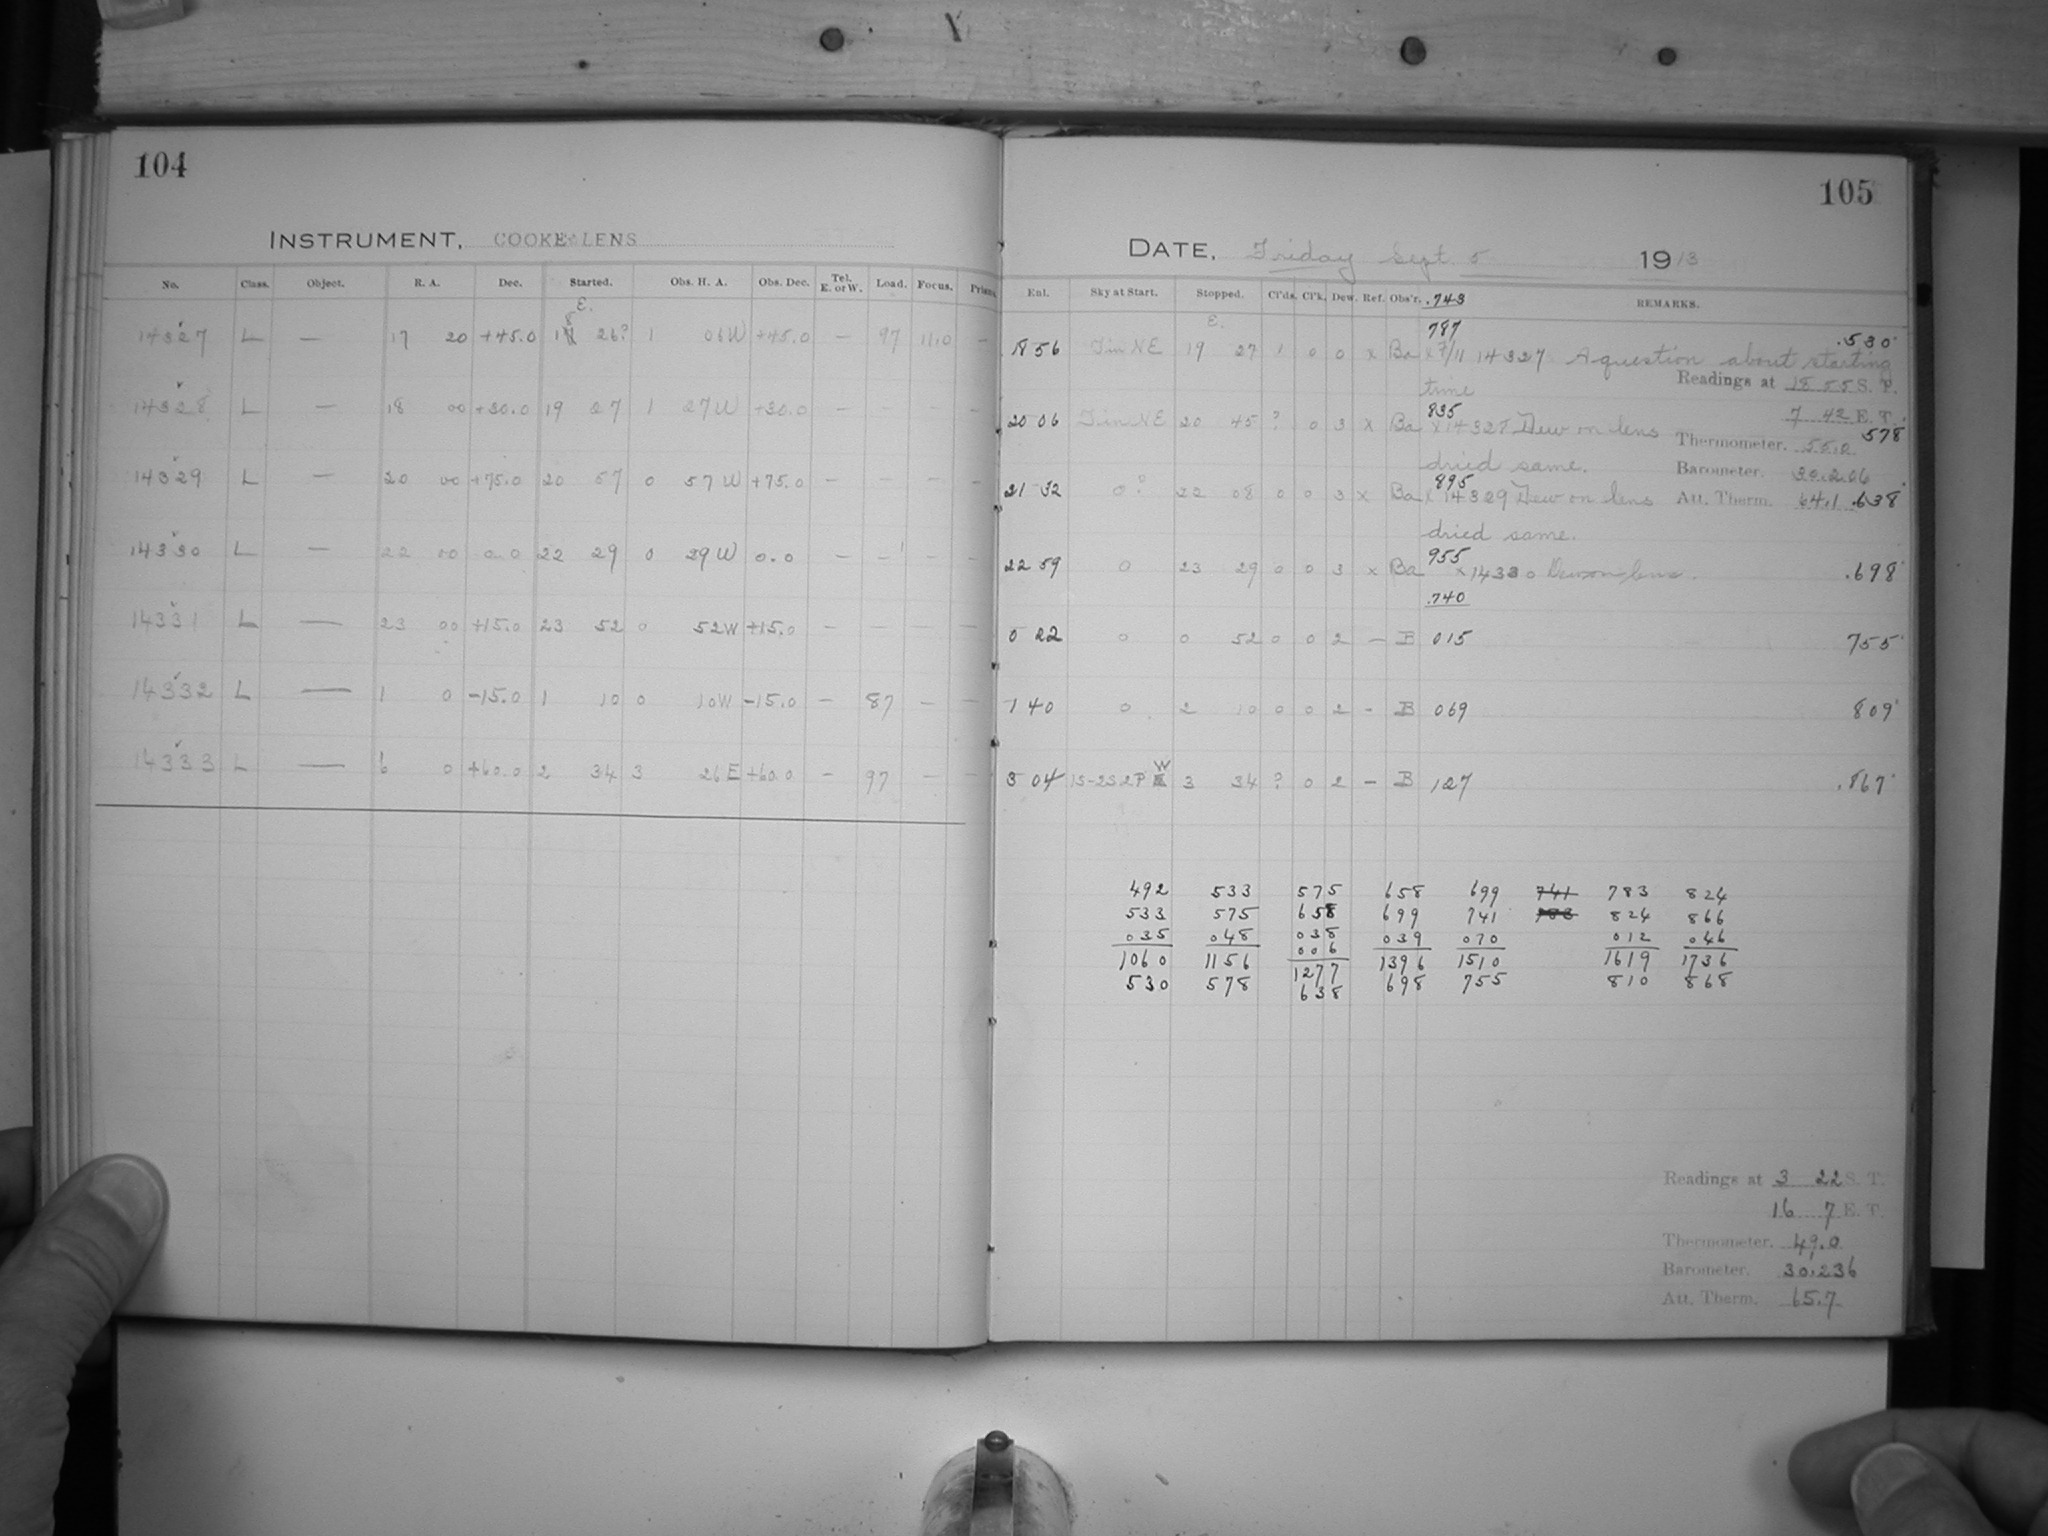 104
INSTRUMENT, COOKE LENS
No. Class. Object. R. A. Dec. Started. Obs. H. A. Obs. Dec. Tel. E. or W. Load. Focus. Prism
E.
14327 L — 17 20 +45.0 18 26? 1 06W +45.0 — 97 11.0 —
14328 L — 18 00 +30.0 19 27 1 27W +30.0 — — — —
14329 L — 20 00 +75.0 20 57 0 57W +75.0 — — — —
14330 L — 22 00 0.0 22 29 0 29W 0.0 — — — —
14331 L — 23 00 +15.0 23 52 0 52W +15.0 — — — —
14332 L — 1 0 -15.0 1 10 0 10W -15.0 — 87 — —
14333 L — 6 0 +60.0 2 34 3 26E +60.0 — 97 — —
105
DATE, Friday Sept. 5 1913
Enl. Sky at Start. Stopped. Cl'ds. Cl'k. Dew. Ref. Obs'r. .743 REMARKS.
E. 787 .530
18 56 NE 19 27 1 0 0 x Ba x 7/11 14327 A question about starting
time Readings at 18 55 S. T.
7 42 E. T.
835 578
20 06 NE 20 45 ? 0 3 x Ba x 14328 Dew on lens
Thermometer. 55.0
dried same. Barometer. 30.206
895
21 32 0? 22 08 0 0 3 x Ba x 14329 Dew on lens Att. Therm. 64.1 .638
dried same.
955
22 59 0 23 29 0 0 3 x Ba x 14330 Dew on lens. .698
.740
0 22 0 0 52 0 0 2 — B 015 755
1 40 0 2 10 0 0 2 - B 069 809
3 04 13-2S2P W 3 34 ? 0 2 — B 127 .867
492 533 575 658 699 741 783 824
533 575 658 699 741 783 824 866
035 048 038 039 070 012 046
006
1060 1156 1277 1396 1510 1619 1736
530 578 638 698 755 810 868
Readings at 3 22 S. T.
16 7 E. T.
Thermometer. 49.0
Barometer. 30.236
Att. Therm. 65.7